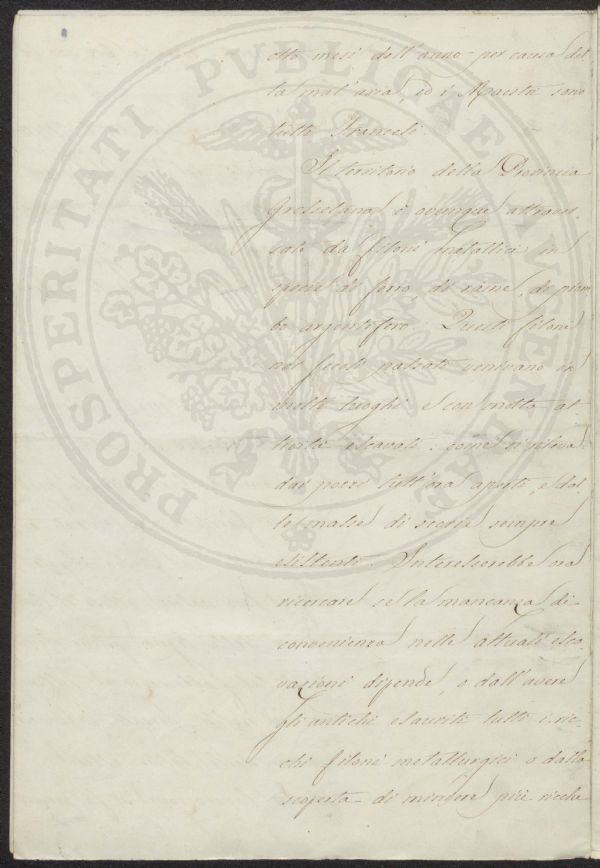 PROSPERITATI PUBLICAE AUGENDAE
otto mesi dell'anno per causa del-
la mal'aria, ed i Maestri sono
tutti Francesi.
Il territorio della Provincia
Grossetana è ovunque attraver-
sato da filoni metallici in
specie di ferro, di rame, di piom
bo argentifero. Questi filoni
nei secoli passati venivano in
molti luoghi e con molta at-
tività escavati: come si rileva
dai pozzi tutt'ora aperti, e dal-
le masse di scorie sempre
esistenti. Interesserebbe ora
ricercare se la mancanza di
convenienza nelle attuali esca-
vazioni dipende, o dall'avere
gli antichi esauriti tutti i ric-
chi filoni metallurgici o dalla
scoperta di miniere più ricche